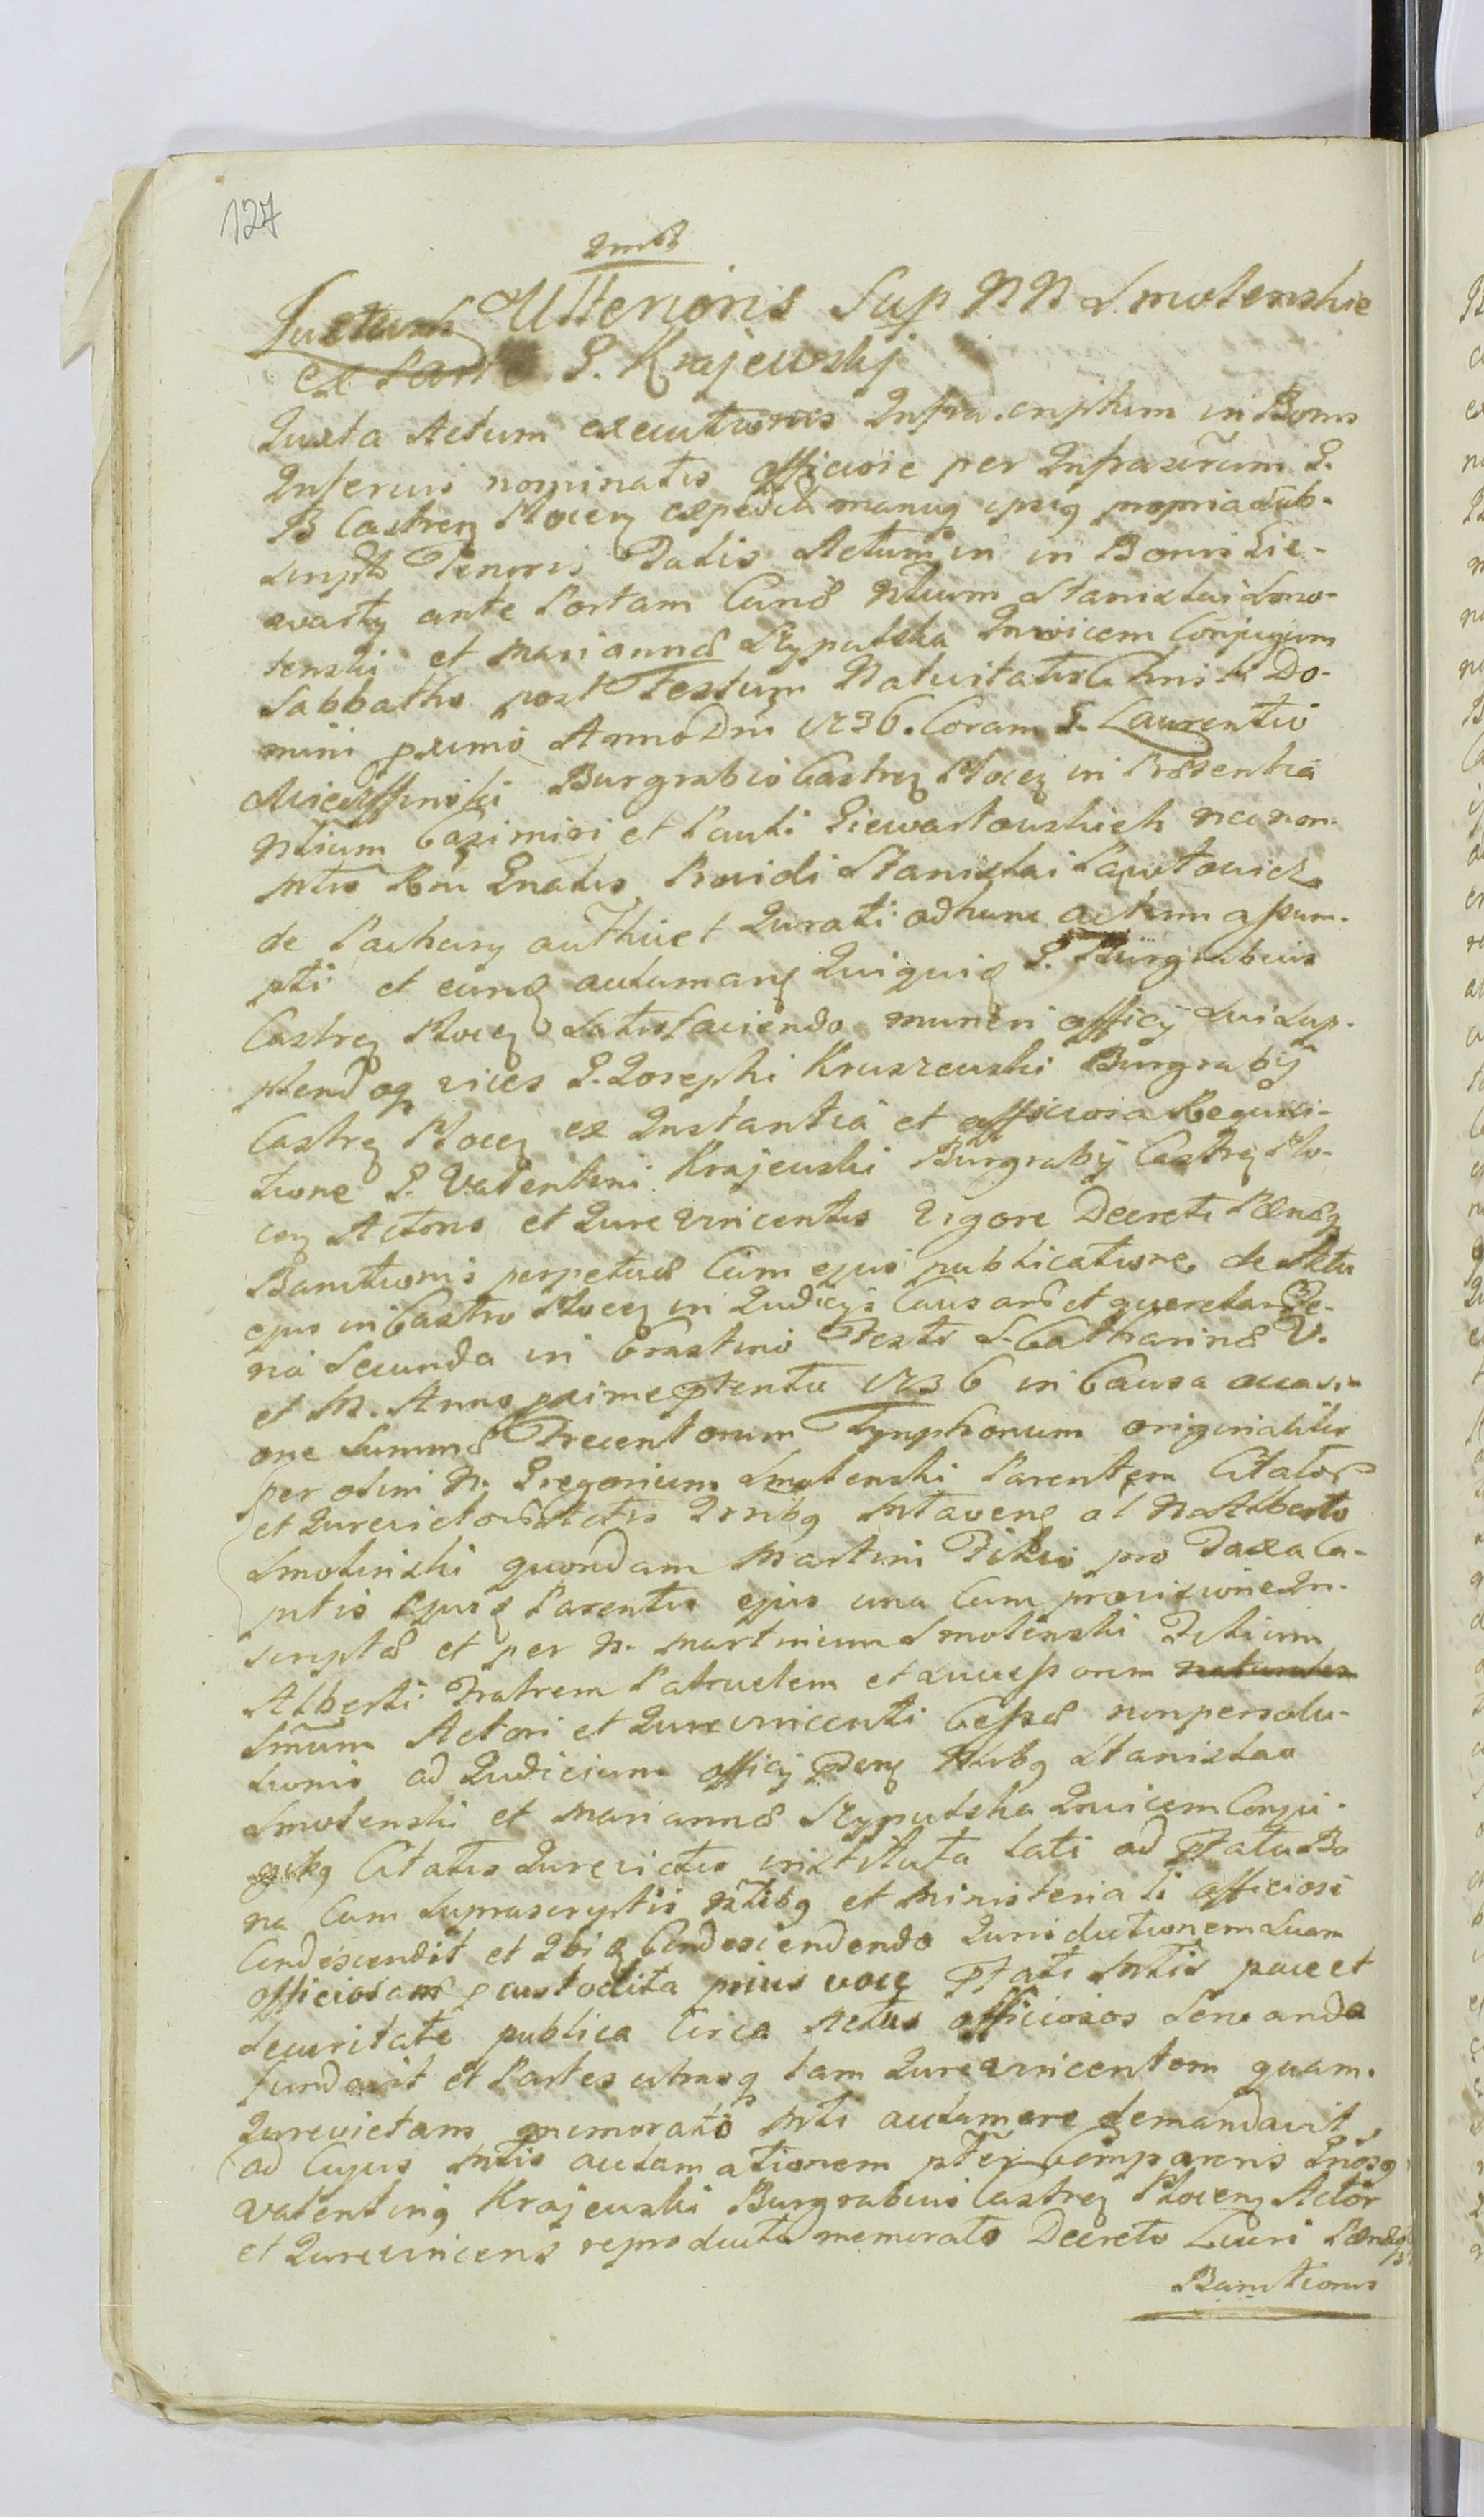 127
Ulterioris Sup NN Smolenskie
ex Parte G. Krajewskj
Juxta Actum executionis Infrascriptum in Bonis
Inferius nominatis officiose per Infrascriptum G.
B Castren Plocen expedit manuq ipsiq propria sub-
script Tenoris Talis Actum in in Bonis Gie-
warty ante Portam Smo-
lenski et Mariannæ Rypulska Invicem Conjugum
Sabbatho post Festum Nativitatis Christi Do-
mini proximo Anno Dni 1736. Coram G. Laurentio
Burgrabio Castren Plocen in Præsentia
Nlium Casimiri et Pauli Giewartowskich necnon
Mtis Rni Gnalis Providi Stanislai Pawlowicz
de Pachary auth et Jurati ad hunc actum assum-
pti et eund aclaman Quiquid G. Burgrabius
Castren Plocen satisfaciendo muneri officij sui sup-
plendoq vices G. Josephi Kruszewski Burgrabij
Castren Plocen ex Instantia et officiosa Requisi-
tione G. Valentini Krajewski Burgrabij Castren Plo-
cen Actoris et Jurevincentis vigore Decreti Pænæ
Banitionis perpetuæ Cum ejus publicatione de Actu
ejus in Castro Plocen in Judicijs Causar et querelar Te-
na Secunda in Crastino Festi S. Catharinæ V.
et M. Anno proxime ptento 1736 in Causa occasi-
one Summæ Trecentorum Tynphonum originaliter
per olim N. Gregorium Smolenski Parentem Citator
et Jurevictor Actis
Smolinski quondam Martini Filio pro Taxa Ca-
pitis Parentis ejus una Cum provisione In-
scriptæ et per N. Martinum Smolenski Filium
Alberti Fratrem Patruelem et successorem
Smum Actori et Jurevincenti Cessæ nonpersolu-
tionis ad Judicium officij Stanislao
Smolenski et Mariannæ Rypulska Invicem Conju-
gibq Citatis Jurevictis instituta lati ad ptata Bo
na Cum suprascriptis Nlibq et Ministeriali officiose
Condescendit et Ibiq Condescendendo Jurisdictionem suam
officiosam custodita prius voce ptati Mtis pace et
securitate publica Circa Actus officiosos servanda
fundavit et Partes utrasq tam Jurevincentem quam
Jurevictam memorato Mti aclamare demandavit
ad Cujus Mtis aclamationem pter Comparens Gnosq
Valentinq Krajewski Burgrabius Castren Plocen Actor
et Jurevincens reproducto memorato Decreto Lucri Pænæ
Banitionis